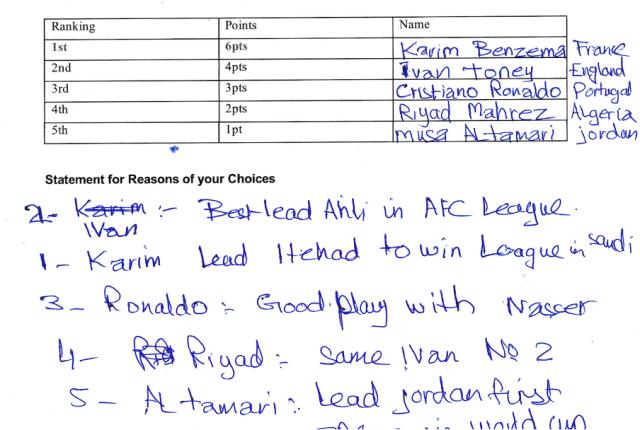 Ranking Points Name
1st 6pts Karim Benzema France
2nd 4pts Ivan Toney England
3rd 3pts Cristiano Ronaldo Portugal
4th 2pts Riyad Mahrez Algeria
5th 1pt musa ALtamari jordan
Statement for Reasons of your Choices
2- Karim :- Best lead Ahli in AFC League.
Ivan
1- Karim Lead Itehad to win League in saudi
3- Ronaldo :- Good play with Nasser
4- Riyad :- same Ivan No 2
5- ALtamari :- Lead jordan first
in world cup